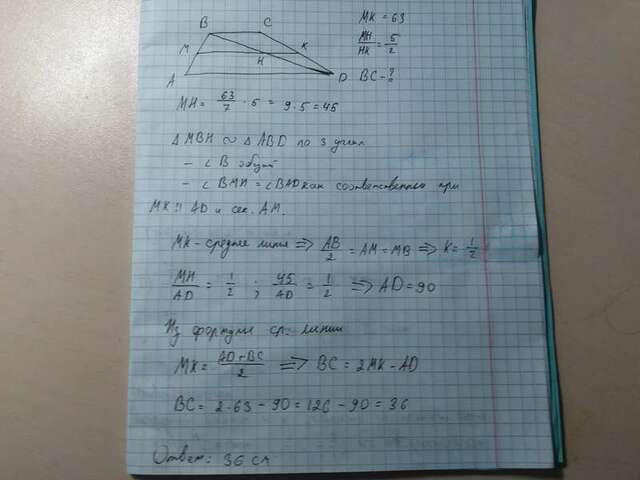 B C
M K
H
A D
MK = 63
MH/HK = 5/2
BC - ?
MH = 63/7 · 5 = 9·5 = 45
△MBH ∾ △ABD по 3 углам
- ∠B общий
- ∠BMH = ∠BAD как соответственные при
MK || AD и сек. AM.
MK - средняя линия ⇒ AB/2 = AM = MB ⇒ K = 1/2
MH/AD = 1/2 ; 45/AD = 1/2 ⇒ AD = 90
Из формулы ср. линии
MK = AD + BC/2 ⇒ BC = 2MK - AD
BC = 2·63 - 90 = 126 - 90 = 36
Ответ: 36 см